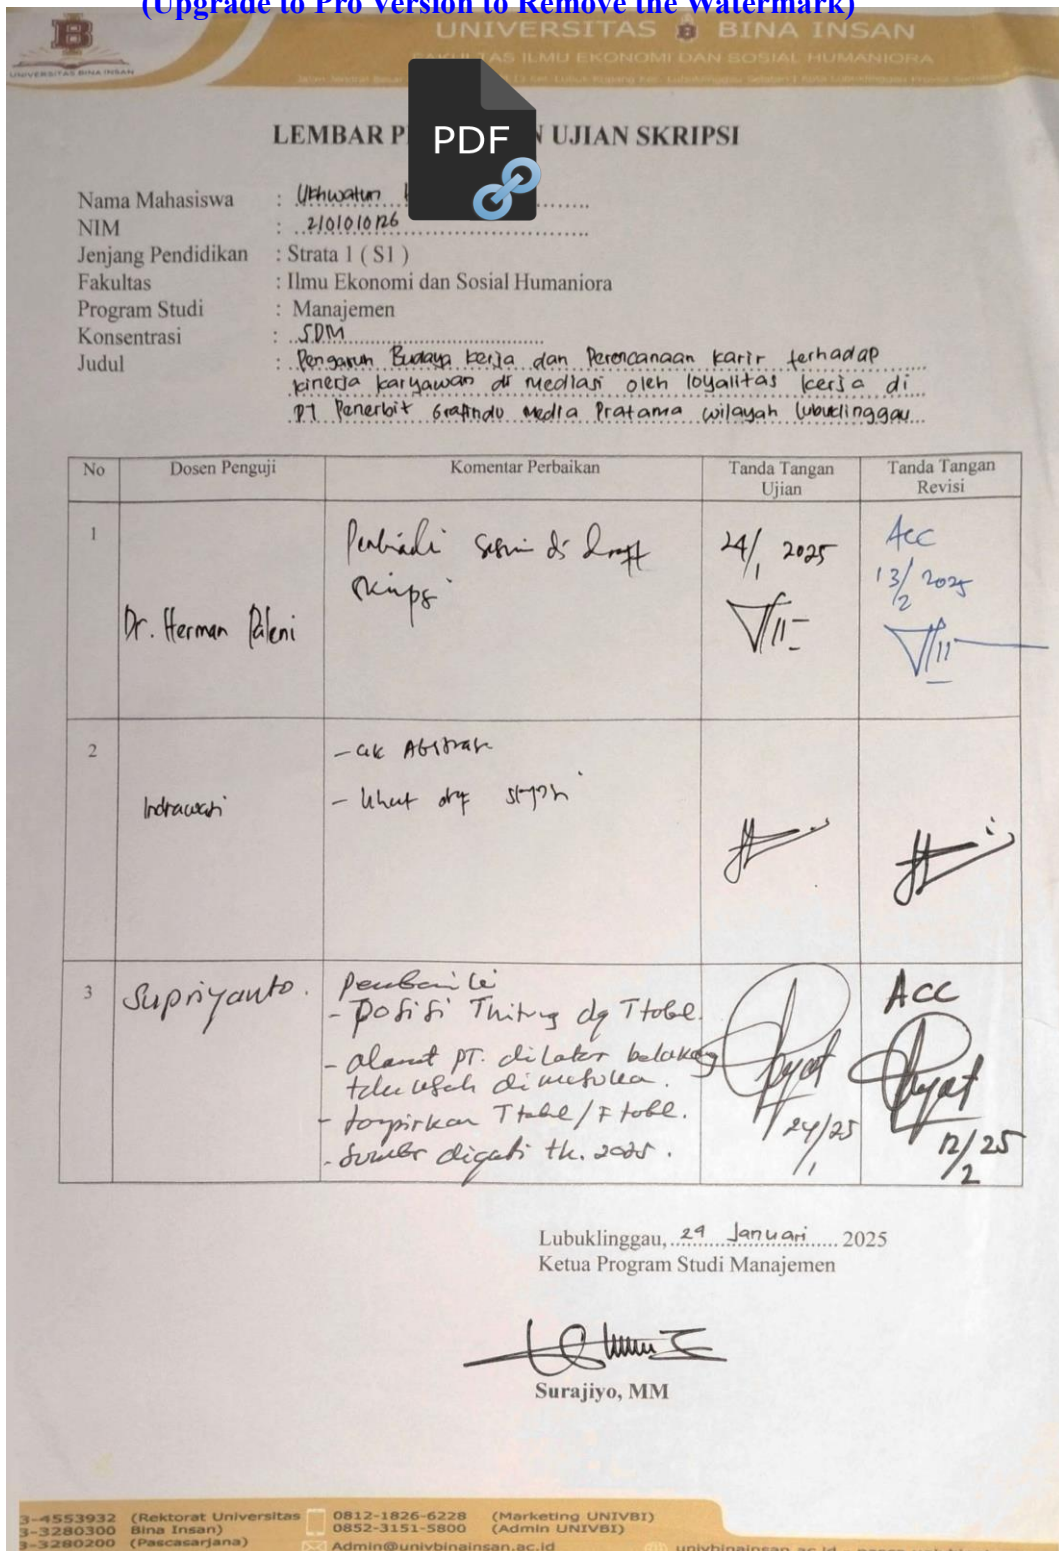 (Upgrade to Pro Version to Remove the Watermark)
UNIVERSITAS BINA INSAN
FAKULTAS ILMU EKONOMI DAN SOSIAL HUMANIORA
UNIVERSITAS BINA INSAN
PDF
LEMBAR P N UJIAN SKRIPSI
Nama Mahasiswa : Ukhwatun
NIM : 2101010126
Jenjang Pendidikan : Strata 1 ( S1 )
Fakultas : Ilmu Ekonomi dan Sosial Humaniora
Program Studi : Manajemen
Konsentrasi : SDM
Judul : Pengaruh Budaya kerja dan Perencanaan karir terhadap
kinerja karyawan di mediasi oleh loyalitas kerja di
PT Penerbit Grafindo Media Pratama wilayah lubuklinggau
No Dosen Penguji Komentar Perbaikan Tanda Tangan Ujian Tanda Tangan Revisi
1 Dr. Herman Paleni
Perbaiki sesuai di draft
skripsi
24/1 2025
Acc
13/2 2025
2 Indrawati
- cek Abstrak
- lihat
3 Supriyanto.
Perbaiki
- Posisi Thitung dg Ttabel.
- alamat PT. dilatar belakang
- lampirkan Ttabel/Ftabel.
- Sumber diganti th. 2025.
24/25
1
ACC
12/25
2
Lubuklinggau, 29 Januari 2025
Ketua Program Studi Manajemen
Surajiyo, MM
3-4553932 (Rektorat Universitas
3-3280300 Bina Insan)
3-3280200 (Pascasarjana)
0812-1826-6228 (Marketing UNIVBI)
0852-3151-5800 (Admin UNIVBI)
Admin@univbinainsan.ac.id
univbinainsan.ac.id